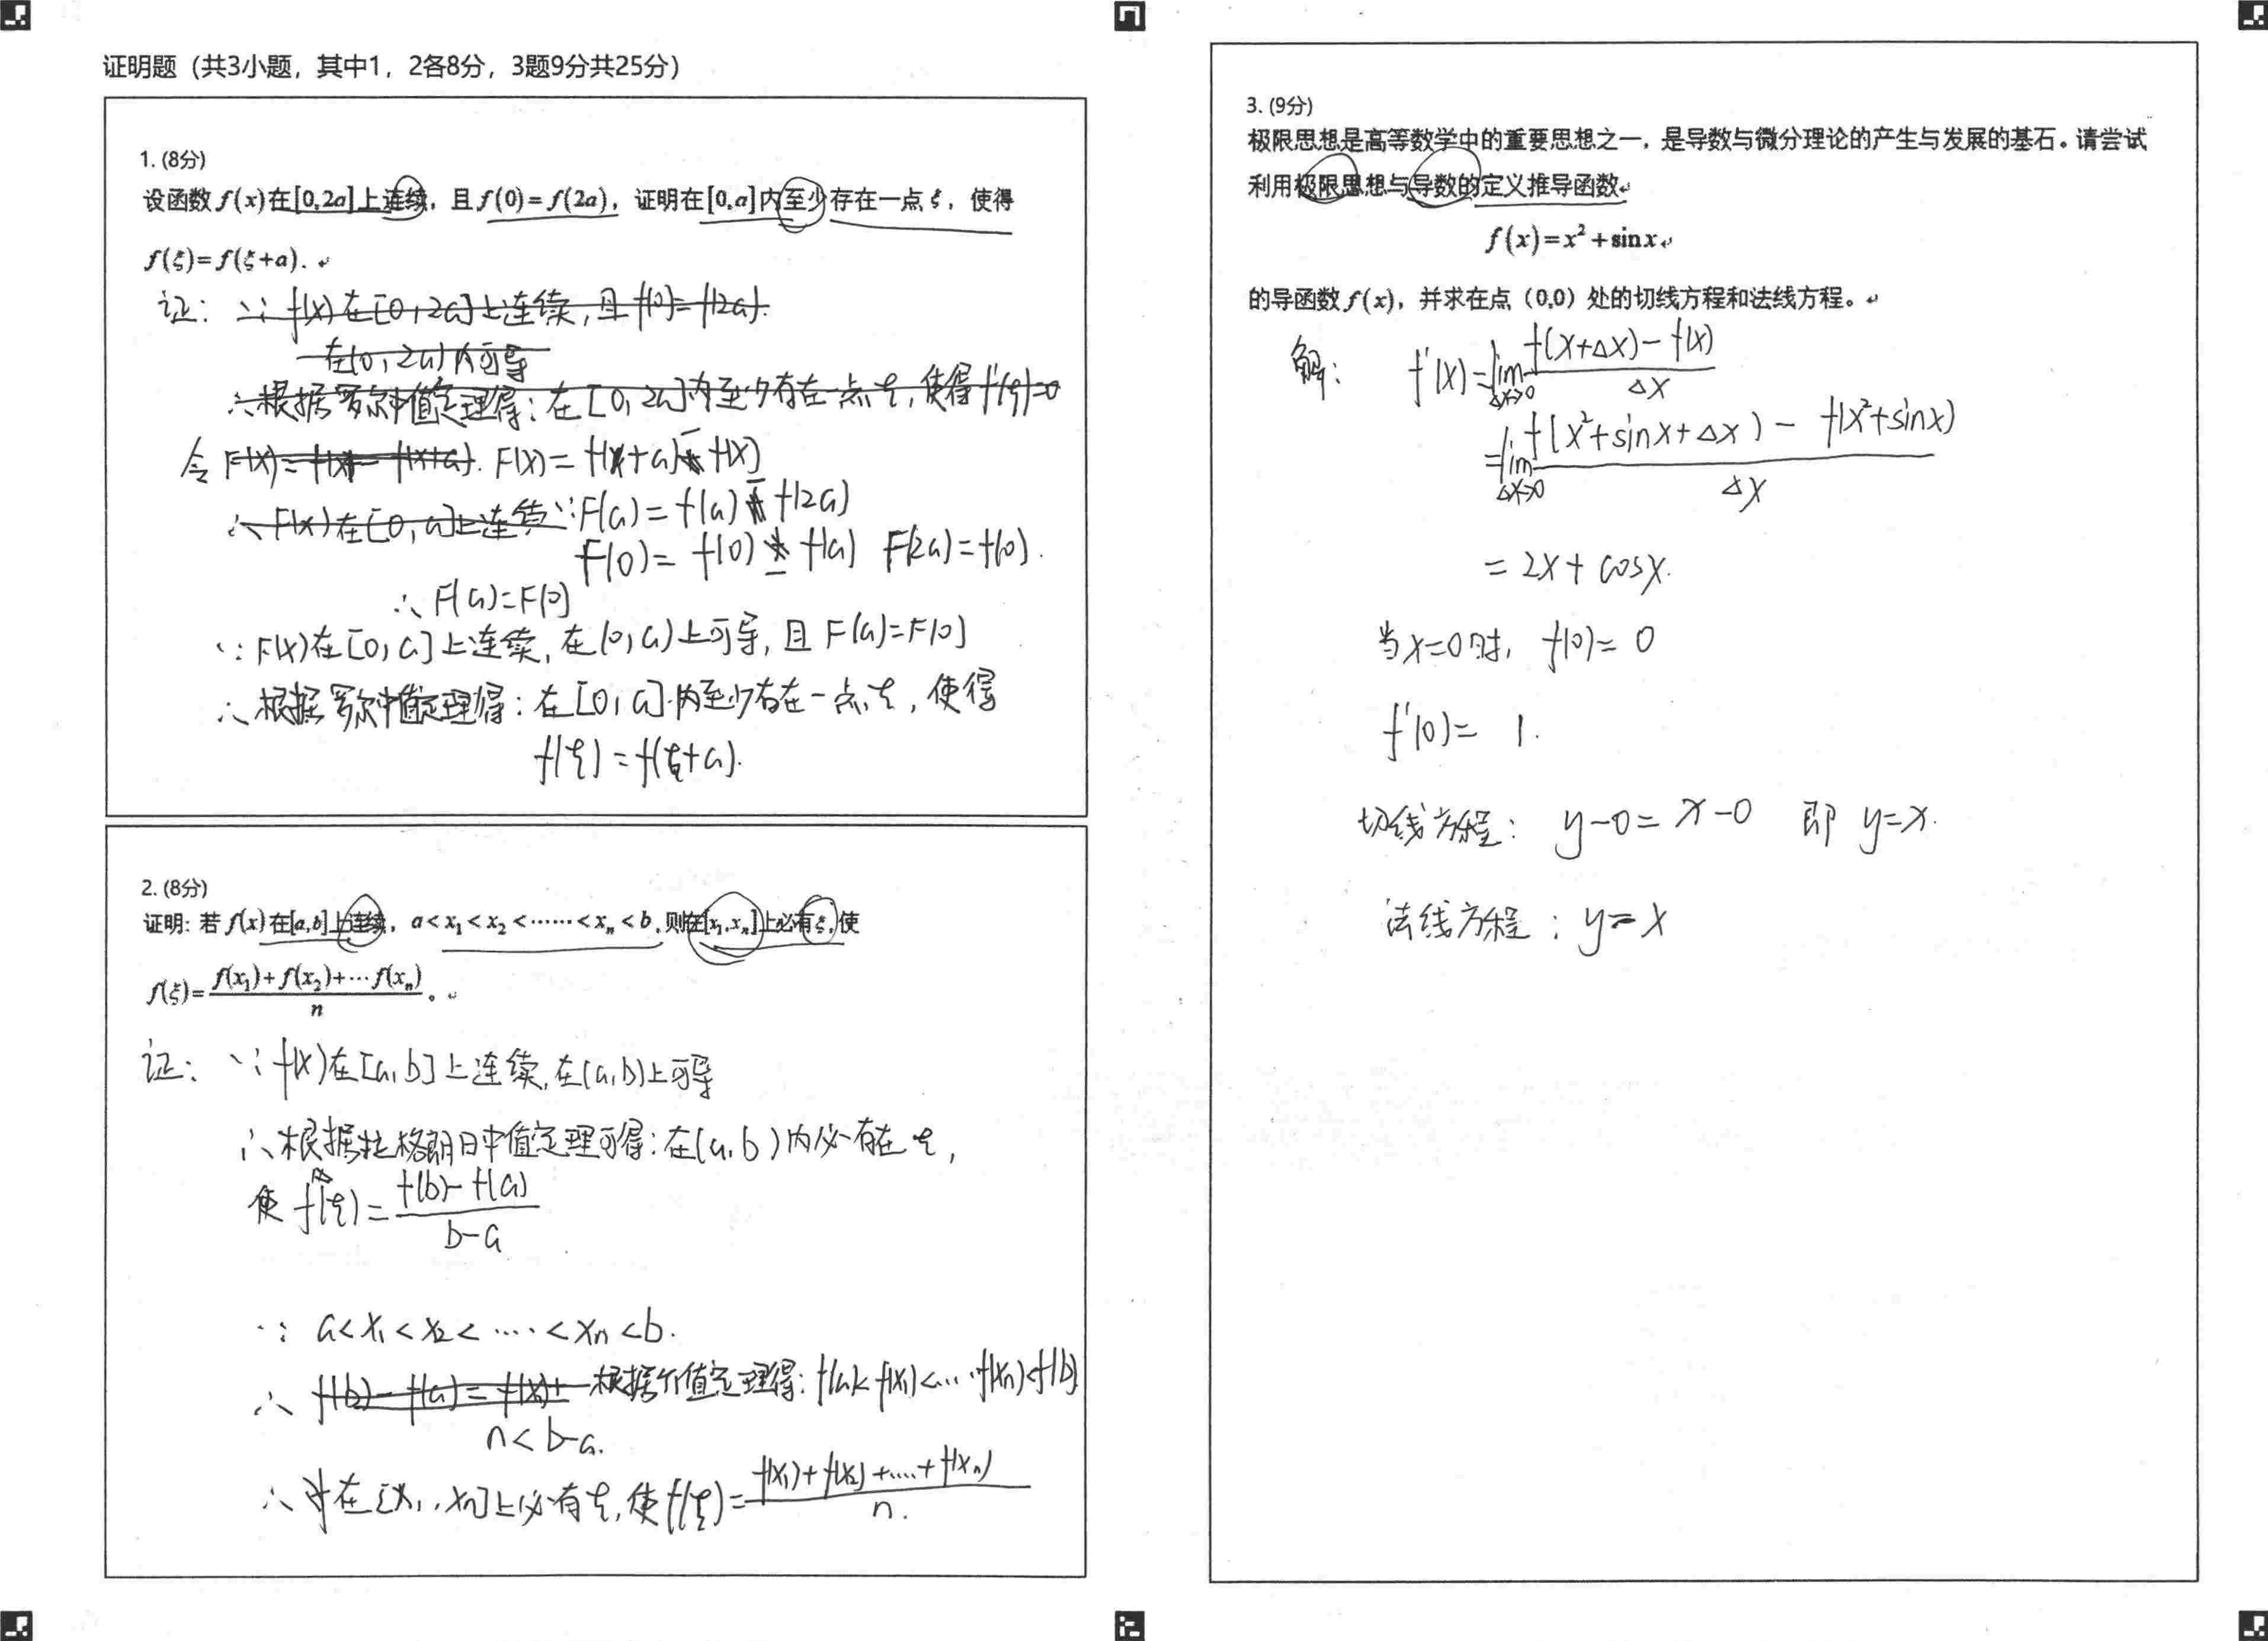 证明题（共3小题，其中1，2各8分，3题9分共25分）
1. (8分)
设函数 f(x)在[0,2a]上连续，且 f(0)=f(2a)，证明在[0,a]内至少存在一点 ξ，使得
f(ξ)=f(ξ+a).
证：∵ f(x)在[0,2a]上连续,且f(0)=f(2a).
在(0,2a)内可导
∴根据罗尔中值定理得：在[0,2a]内至少存在一点ξ,使得f'(ξ)=0
令 F(x)=f(x)-f(x+a). F(x)=f(x+a)-f(x)
∴F(x)在[0,a]上连续 ∵F(a)=f(a)-f(2a)
F(0)=f(0)-f(a) F(2a)=f(0).
∴ F(a)=F(0)
∵F(x)在[0,a]上连续,在(0,a)上可导,且F(a)=F(0)
∴根据罗尔中值定理得：在[0,a]内至少存在一点ξ,使得
f(ξ)=f(ξ+a).
2. (8分)
证明: 若 f(x)在[a,b]上连续，a<x₁<x₂<……<xₙ<b,则在[x₁,xₙ]上必有ξ,使
f(ξ)=(f(x₁)+f(x₂)+…f(xₙ))/n。
证：∵f(x)在[a,b]上连续,在(a,b)上可导
∴根据拉格朗日中值定理可得:在(a,b)内必存在ξ,
使f'(ξ)=(f(b)-f(a))/(b-a)
∵ a<x₁<x₂<....<xₙ<b.
∴ f(b)-f(a)=f(x₁)+ 根据介值定理得:f(a)<f(x₁)<...f(xₙ)<f(b)
n<b-a.
∴ 在[x₁,xₙ]上必有ξ,使f(ξ)=(f(x₁)+f(x₂)+....+f(xₙ))/n.
3. (9分)
极限思想是高等数学中的重要思想之一，是导数与微分理论的产生与发展的基石。请尝试
利用极限思想与导数的定义推导函数
f(x)=x²+sinx
的导函数 f(x)，并求在点（0,0）处的切线方程和法线方程。
解： f'(x)=lim Δx→0 (f(x+Δx)-f(x))/Δx
=lim Δx→0 (f(x²+sinx+Δx)-f(x²+sinx))/Δx
=2x+cosx.
当x=0时, f(0)=0
f'(0)= 1.
切线方程: y-0=x-0 即 y=x.
法线方程: y=x